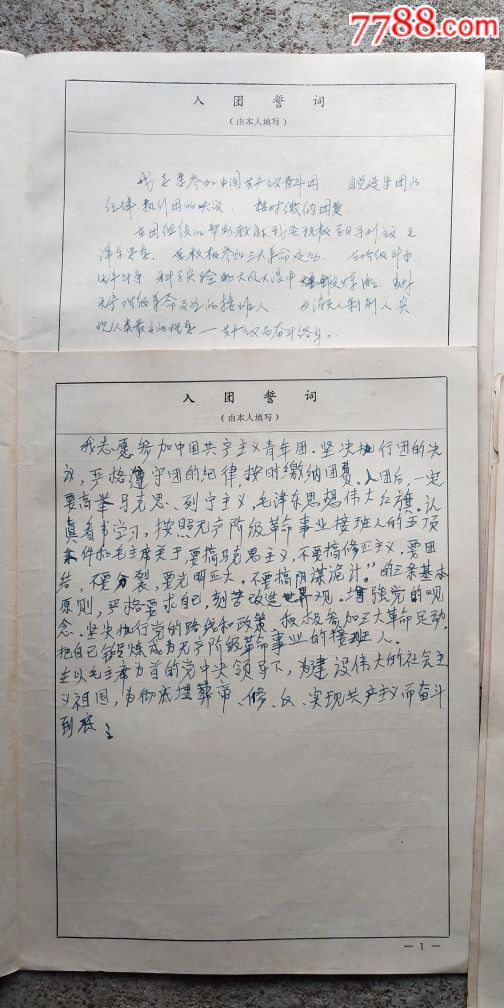 7788.com
入团誓词
（由本人填写）
我志愿参加中国共产主义青年团，自觉遵守团的
纪律执行团的决议，按时缴纳团费。
在团组织的帮助教育下
泽东思想，积极参加三大革命运动，在阶级斗争
生产斗争、科学实验的大风大浪中
无产阶级革命事业的接班人，为消灭人剥削人实
现人类最高的理想——共产主义而奋斗终身。
入团誓词
（由本人填写）
我志愿参加中国共产主义青年团．坚决执行团的决
议，严格遵守团的纪律，按时缴纳团费。入团后，一定
要高举马克思、列宁主义，毛泽东思想伟大红旗。认
真看书学习，按照无产阶级革命事业接班人的五项
条件和毛主席关于要搞马克思主义，不要搞修正主义，要团
结，不要分裂，要光明正大，不要搞阴谋诡计。”的三条基本
原则，严格要求自己，刻苦改造世界观，增强党的观
念．坚决执行党的路线和政策．积极参加三大革命运动，
把自己锻炼成为无产阶级革命事业的接班人．
在以毛主席为首的党中央领导下，为建设伟大的社会主
义祖国，为彻底埋葬帝、修、反、实现共产主义而奋斗
到底
—1—